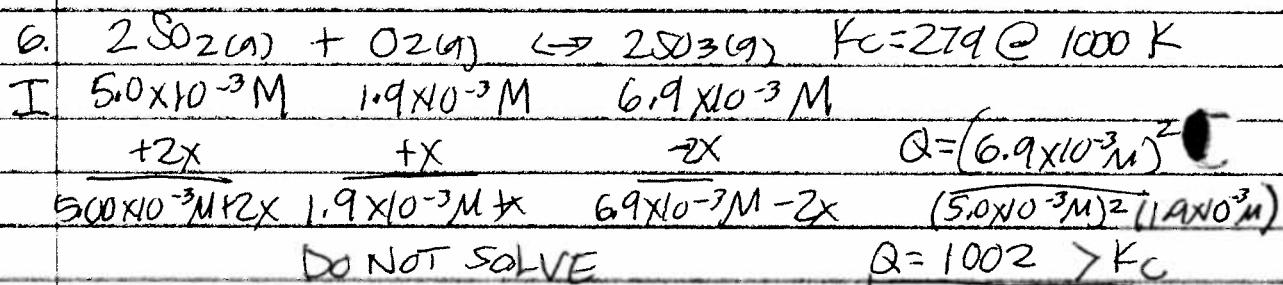 6. 2SO2(g) + O2(g) <-> 2SO3(g) Kc=279 @ 1000 K
I 5.0x10-3M 1.9x10-3M 6.9x10-3M
+2x +x -2x Q=(6.9x10-3M)2
5.00x10-3M+2x 1.9x10-3M+x 6.9x10-3M-2x (5.0x10-3M)2(1.9x10-3M)
DO NOT SOLVE Q=1002 >Kc